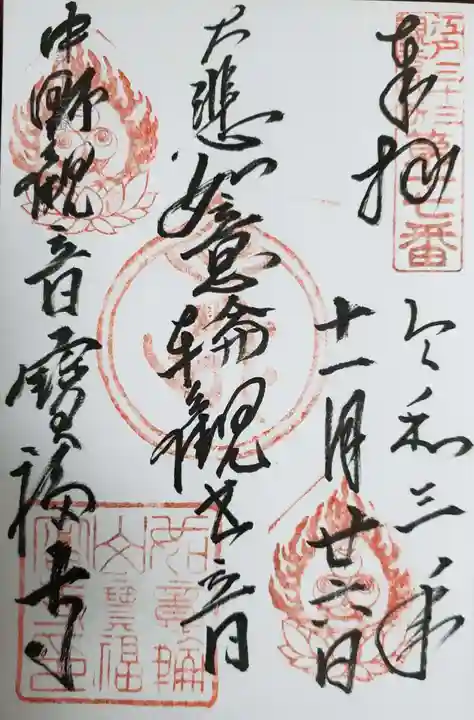 江戸三十三
観音札所第十七番
奉拝
令和三年
十一月廿六日
大悲如意輪観世音
中野観音寶福寺
如意輪
山寶福